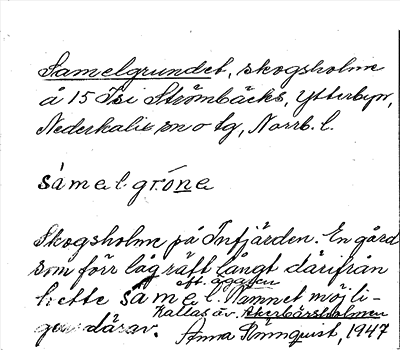 Samelgrundet, skogsholme
å 15 Isi Strömbäcks, Ytterbyn,
Nederkalix sn o tg, Norrb. l.
sámel gróne
Skogsholme på Infjärden. En gård
som förr låg rätt långt därifrån
hette sámel. Namnet möjli-
eft. ägaren
gen därav. Kallas av Åkerbärsholmen
Anna Rönnquist, 1947